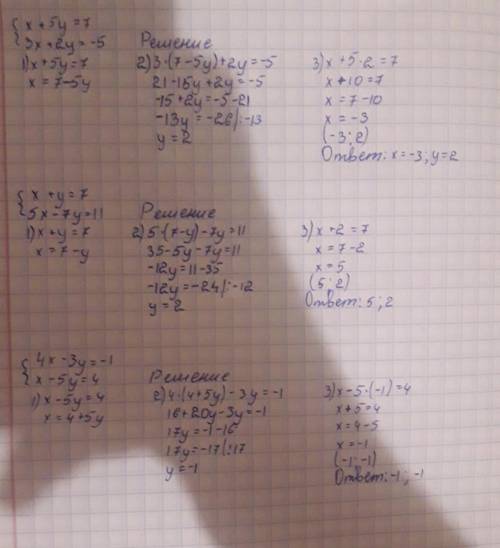 {x+5y=7
{3x+2y=-5
Решение
1)x+5y=7
x=7-5y
2)3·(7-5y)+2y=-5
21-15y+2y=-5
-15+2y=-5-21
-13y=-26|:-13
y=2
3)x+5·2=7
x+10=7
x=7-10
x=-3
(-3;2)
Ответ: x=-3; y=2
{x+y=7
{5x-7y=11
Решение
1)x+y=7
x=7-y
2)5·(7-y)-7y=11
35-5y-7y=11
-12y=11-35
-12y=-24|:-12
y=2
3)x+2=7
x=7-2
x=5
(5;2)
Ответ: 5;2
{4x-3y=-1
{x-5y=4
Решение
1)x-5y=4
x=4+5y
2)4·(4+5y)-3y=-1
16+20y-3y=-1
17y=-1-16
17y=-17|:17
y=-1
3)x-5·(-1)=4
x+5=4
x=4-5
x=-1
(-1;-1)
Ответ: -1; -1